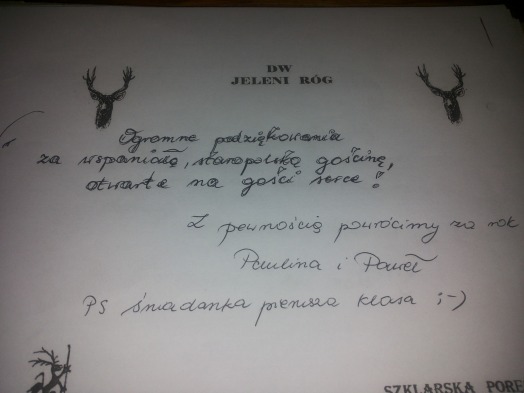 DW
JELENI RÓG
Ogromne podziękowania
za wspaniałą, staropolską gościnę,
otwarte na gości serce!
Z pewnością powrócimy za rok
Paulina i Paweł
PS śniadanka pierwsza klasa ;-)
SZKLARSKA PORĘ